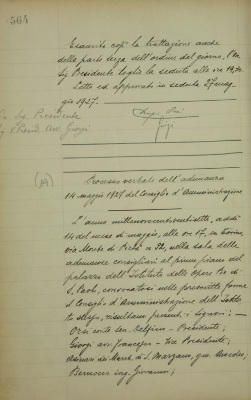 564
Esaurita così la trattazione anche
della parte terza dell'ordine del giorno, l'On.
Sig. Presidente toglie la seduta alle ore
Letto ed approvato in seduta
gio 1927.
Sig. Presidente
Avv. Giorgi
Processo verbale dell'adunanza
14 maggio 1927 del Consiglio d'Amministrazione
L'anno millenovecentoventisette, addì
14 del mese di maggio, alle ore 17, in Torino,
via Monte di Pietà n. 32, nella sala delle
adunanze consigliari al primo piano del
palazzo dell'Istituto delle Opere Pie di
S. Paolo, convocatosi nelle prescritte forme
il Consiglio d'Amministrazione dell'Istituto
stesso, risultano presenti i Signori: —
Orsi conte sen. Delfino - Presidente;
Giorgi avv. Francesco - Vice Presidente;
Asinari dei March. di S. Marzano, gen. Amedeo;
Bernocco ing. Giovanni;